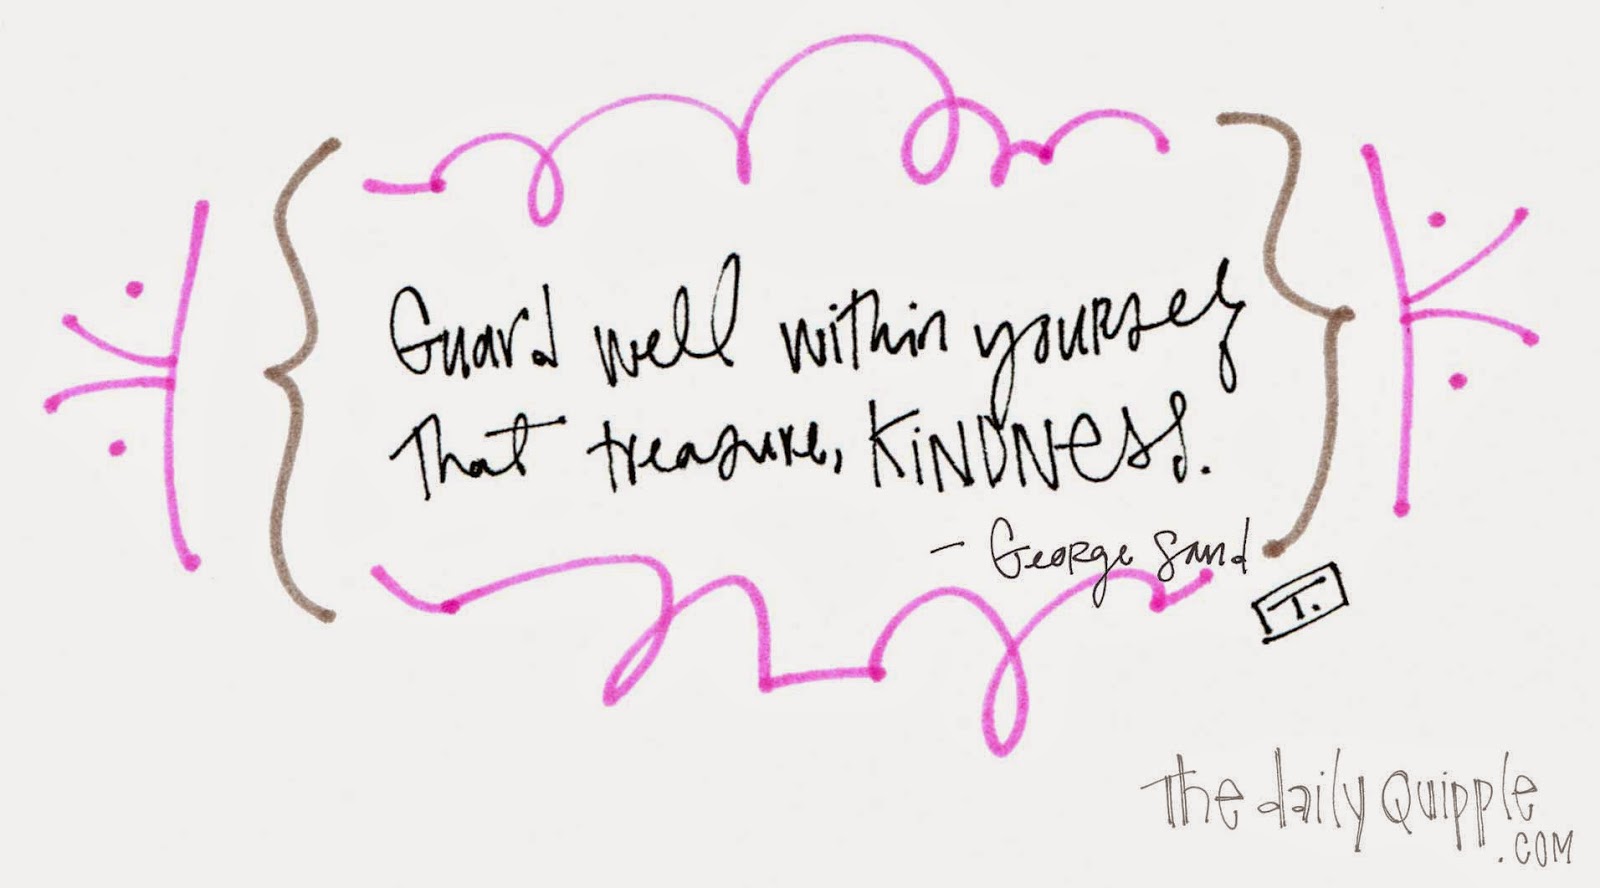 Guard well within yourself
that treasure, KINDNESS.
- George Sand
T.
the daily Quipple
.com